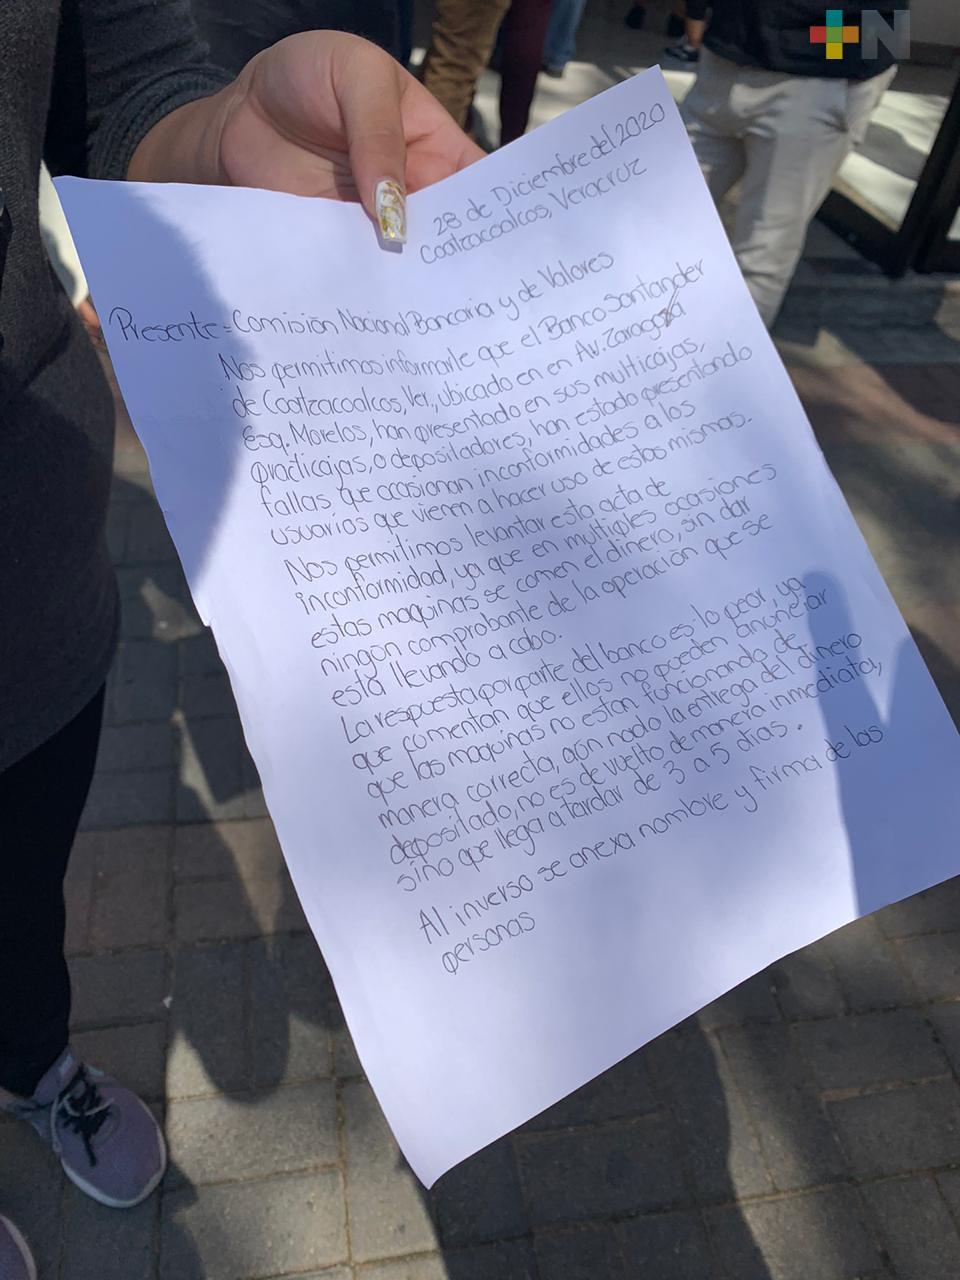 +N
28 de Diciembre del 2020
Coatzacoalcos, Veracruz
Presente = Comisión Nacional Bancaria y de Valores
Nos permitimos informarle que el Banco Santander
de Coatzacoalcos, Ver., ubicado en en Av. Zaragoza
Esq. Morelos, han presentado en sus multicajas,
practicajas, o depositadores, han estado presentando
fallas que ocasionan inconformidades a los
usuarios que vienen a hacer uso de estas mismas.
Nos permitimos levantar esta acta de
inconformidad, ya que en multiples ocasiones
estas maquinas se comen el dinero, sin dar
ningún comprobante de la operación que se
esta llevando a cabo.
La respuesta por parte del banco es lo peor, ya
que comentan que ellos no pueden anunciar
que las maquinas no están funcionando de
manera correcta, aún nado la entrega del dinero
depositado, no es de vuelto de manera inmediata,
sino que llega a tardar de 3 a 5 dias.
Al inverso se anexa nombre y firma de las
personas